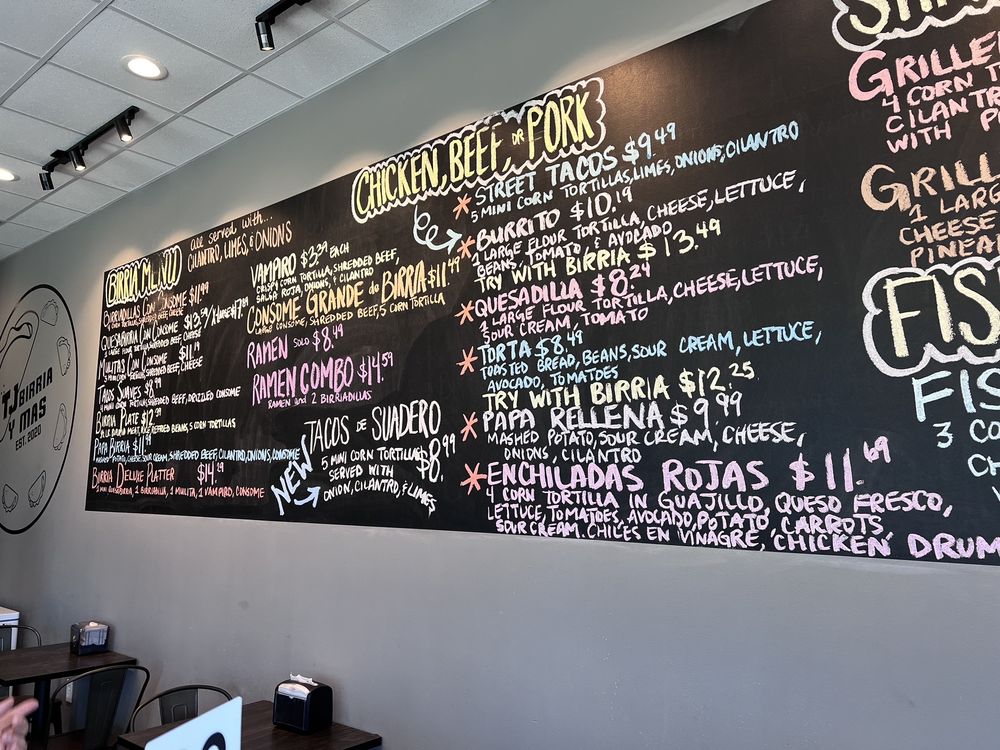 TJ BIRRIA
Y MAS
EST. 2020
BIRRIA MENU
all served with...
CILANTRO, LIMES, & ONIONS
BIRRIADILLAS CON CONSOME $11.99
QUESABIRRIA CON CONSOME
MULITAS CON CONSOME $11.19
5 MINI CORN TORTILLAS, SHREDDED BEEF, CHEESE
TACOS SUAVES $8.99
4 MINI CORN TORTILLAS, SHREDDED BEEF, DRIZZLED CONSOME
BIRRIA PLATE $12.99
REFRIED BEANS, 5 CORN TORTILLAS
PAPA BIRRIA $11.99
MASHED POTATO, SOUR CREAM, SHREDDED BEEF, CILANTRO, ONIONS, CONSOME
BIRRIA DELUXE PLATTER $14.29
1 MINI QUESABIRRIA, 1 BIRRIADILLA, 1 MULITA, 1 VAMPIRO, CONSOME
VAMPIRO $3.39 EACH
CRISPY CORN TORTILLA, SHREDDED BEEF,
SALSA ROJA, ONIONS, & CILANTRO
CONSOME GRANDE de BIRRIA $11.49
LARGE CONSOME, SHREDDED BEEF, 5 CORN TORTILLA
RAMEN SOLO $8.49
RAMEN COMBO $14.59
RAMEN and 2 BIRRIADILLAS
NEW
TACOS DE SUADERO
5 MINI CORN TORTILLAS $8.99
SERVED WITH
ONION, CILANTRO, & LIMES
CHICKEN, BEEF, or PORK
STREET TACOS $9.49
5 MINI CORN TORTILLAS, LIMES, ONIONS, CILANTRO
BURRITO $10.19
1 LARGE FLOUR TORTILLA, CHEESE, LETTUCE,
BEANS, TOMATO, & AVOCADO
TRY WITH BIRRIA $13.49
QUESADILLA $8.24
1 LARGE FLOUR TORTILLA, CHEESE, LETTUCE,
SOUR CREAM, TOMATO
TORTA $8.49
TOASTED BREAD, BEANS, SOUR CREAM, LETTUCE,
AVOCADO, TOMATOES
TRY WITH BIRRIA $12.25
PAPA RELLENA $9.99
MASHED POTATO, SOUR CREAM, CHEESE,
ONIONS, CILANTRO
ENCHILADAS ROJAS $11.69
4 CORN TORTILLA IN GUAJILLO, QUESO FRESCO,
LETTUCE, TOMATOES, AVOCADO, POTATO, CARROTS,
SOUR CREAM, CHILES EN VINAGRE, CHICKEN DRUM
GRILLE
4 CORN T
CILANTR
WITH P
GRILL
1 LARG
CHEESE
PINEA
FIS
FIS
3 CO